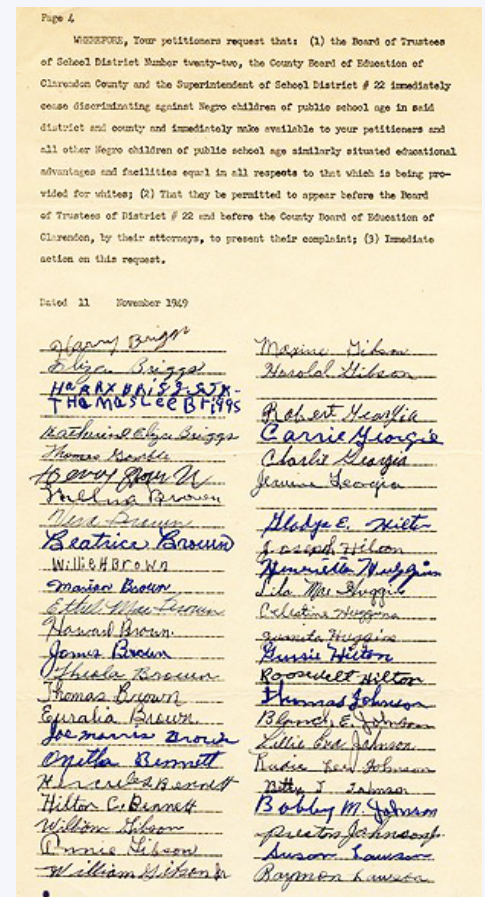 Page 4
WHEREFORE, Your petitioners request that: (1) the Board of Trustees
of School District Number twenty-two, the County Board of Education of
Clarendon County and the Superintendent of School District # 22 immediately
cease discriminating against Negro children of public school age in said
district and county and immediately make available to your petitioners and
all other Negro children of public school age similarly situated educational
advantages and facilities equal in all respects to that which is being pro-
vided for whites; (2) That they be permitted to appear before the Board
of Trustees of District # 22 and before the County Board of Education of
Clarendon, by their attorneys, to present their complaint; (3) Immediate
action on this request.
Dated 11 November 1949
Harry Briggs
Eliza Briggs
Harry Briggs Jr.
Thomas Lee Briggs
Katherine Eliza Briggs
Thomas Gamble
Henry Brown
Thelma Brown
Vera Brown
Beatrice Brown
Willie H Brown
Marian Brown
Ethel Mae Brown
Howard Brown
James Brown
Theola Brown
Thomas Brown
Euralia Brown
Joe morris Brown
Onetha Bennett
Hercules Bennett
Hilton C. Bennett
William Gibson
Annie Gibson
William Gibson Jr
Maxine Gibson
Harold Gibson
Robert Georgia
Carrie Georgia
Charlie Georgia
Jervine Georgia
Gladys E. Hilton
Joseph Hilton
Henrietta Huggins
Lila Mae Huggins
Celestine Huggins
Juanita Huggins
Gussie Hilton
Roosevelt Hilton
Thomas Johnson
Blanch E. Johnson
Lillie Eva Johnson
Rubie Lee Johnson
Betty J Johnson
Bobby M. Johnson
Preston Johnson Jr.
Susan Lawson
Raymon Lawson